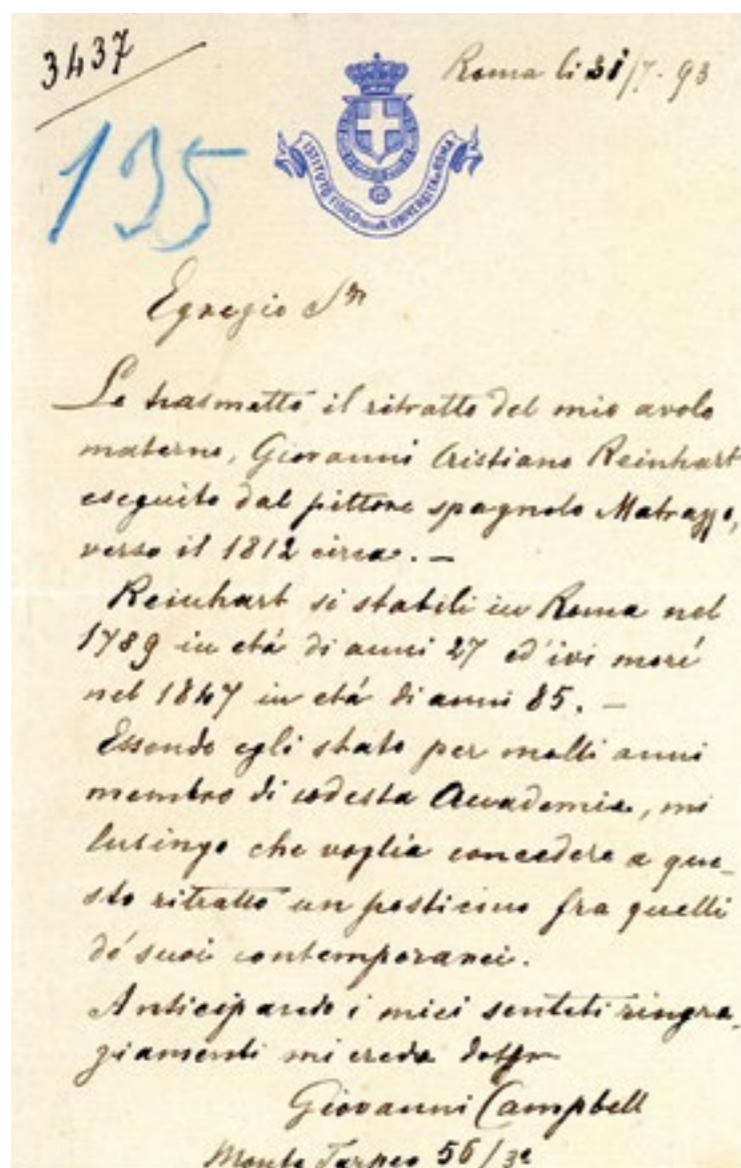 3437
Roma li 31/7-93
135
ISTITUTO FISICO DELLA R. UNIVERSITÀ DI ROMA
Egregio Sr
Le trasmetto il ritratto del mio avolo
materno, Giovanni Cristiano Reinhart
eseguito dal pittore spagnolo Matrazzo,
verso il 1812 circa. —
Reinhart si stabilì in Roma nel
1789 in etá di anni 27 ed'ivi morí
nel 1847 in etá di anni 85. —
Essendo egli stato per molti anni
membro di codesta Accademia, mi
lusingo che voglia concedere a que-
sto ritratto un posticino fra quelli
dé suoi contemporanei.
Anticipando i miei sentiti ringra-
ziamenti mi creda
Giovanni Campbell
Monte Tarpeo 56/3e